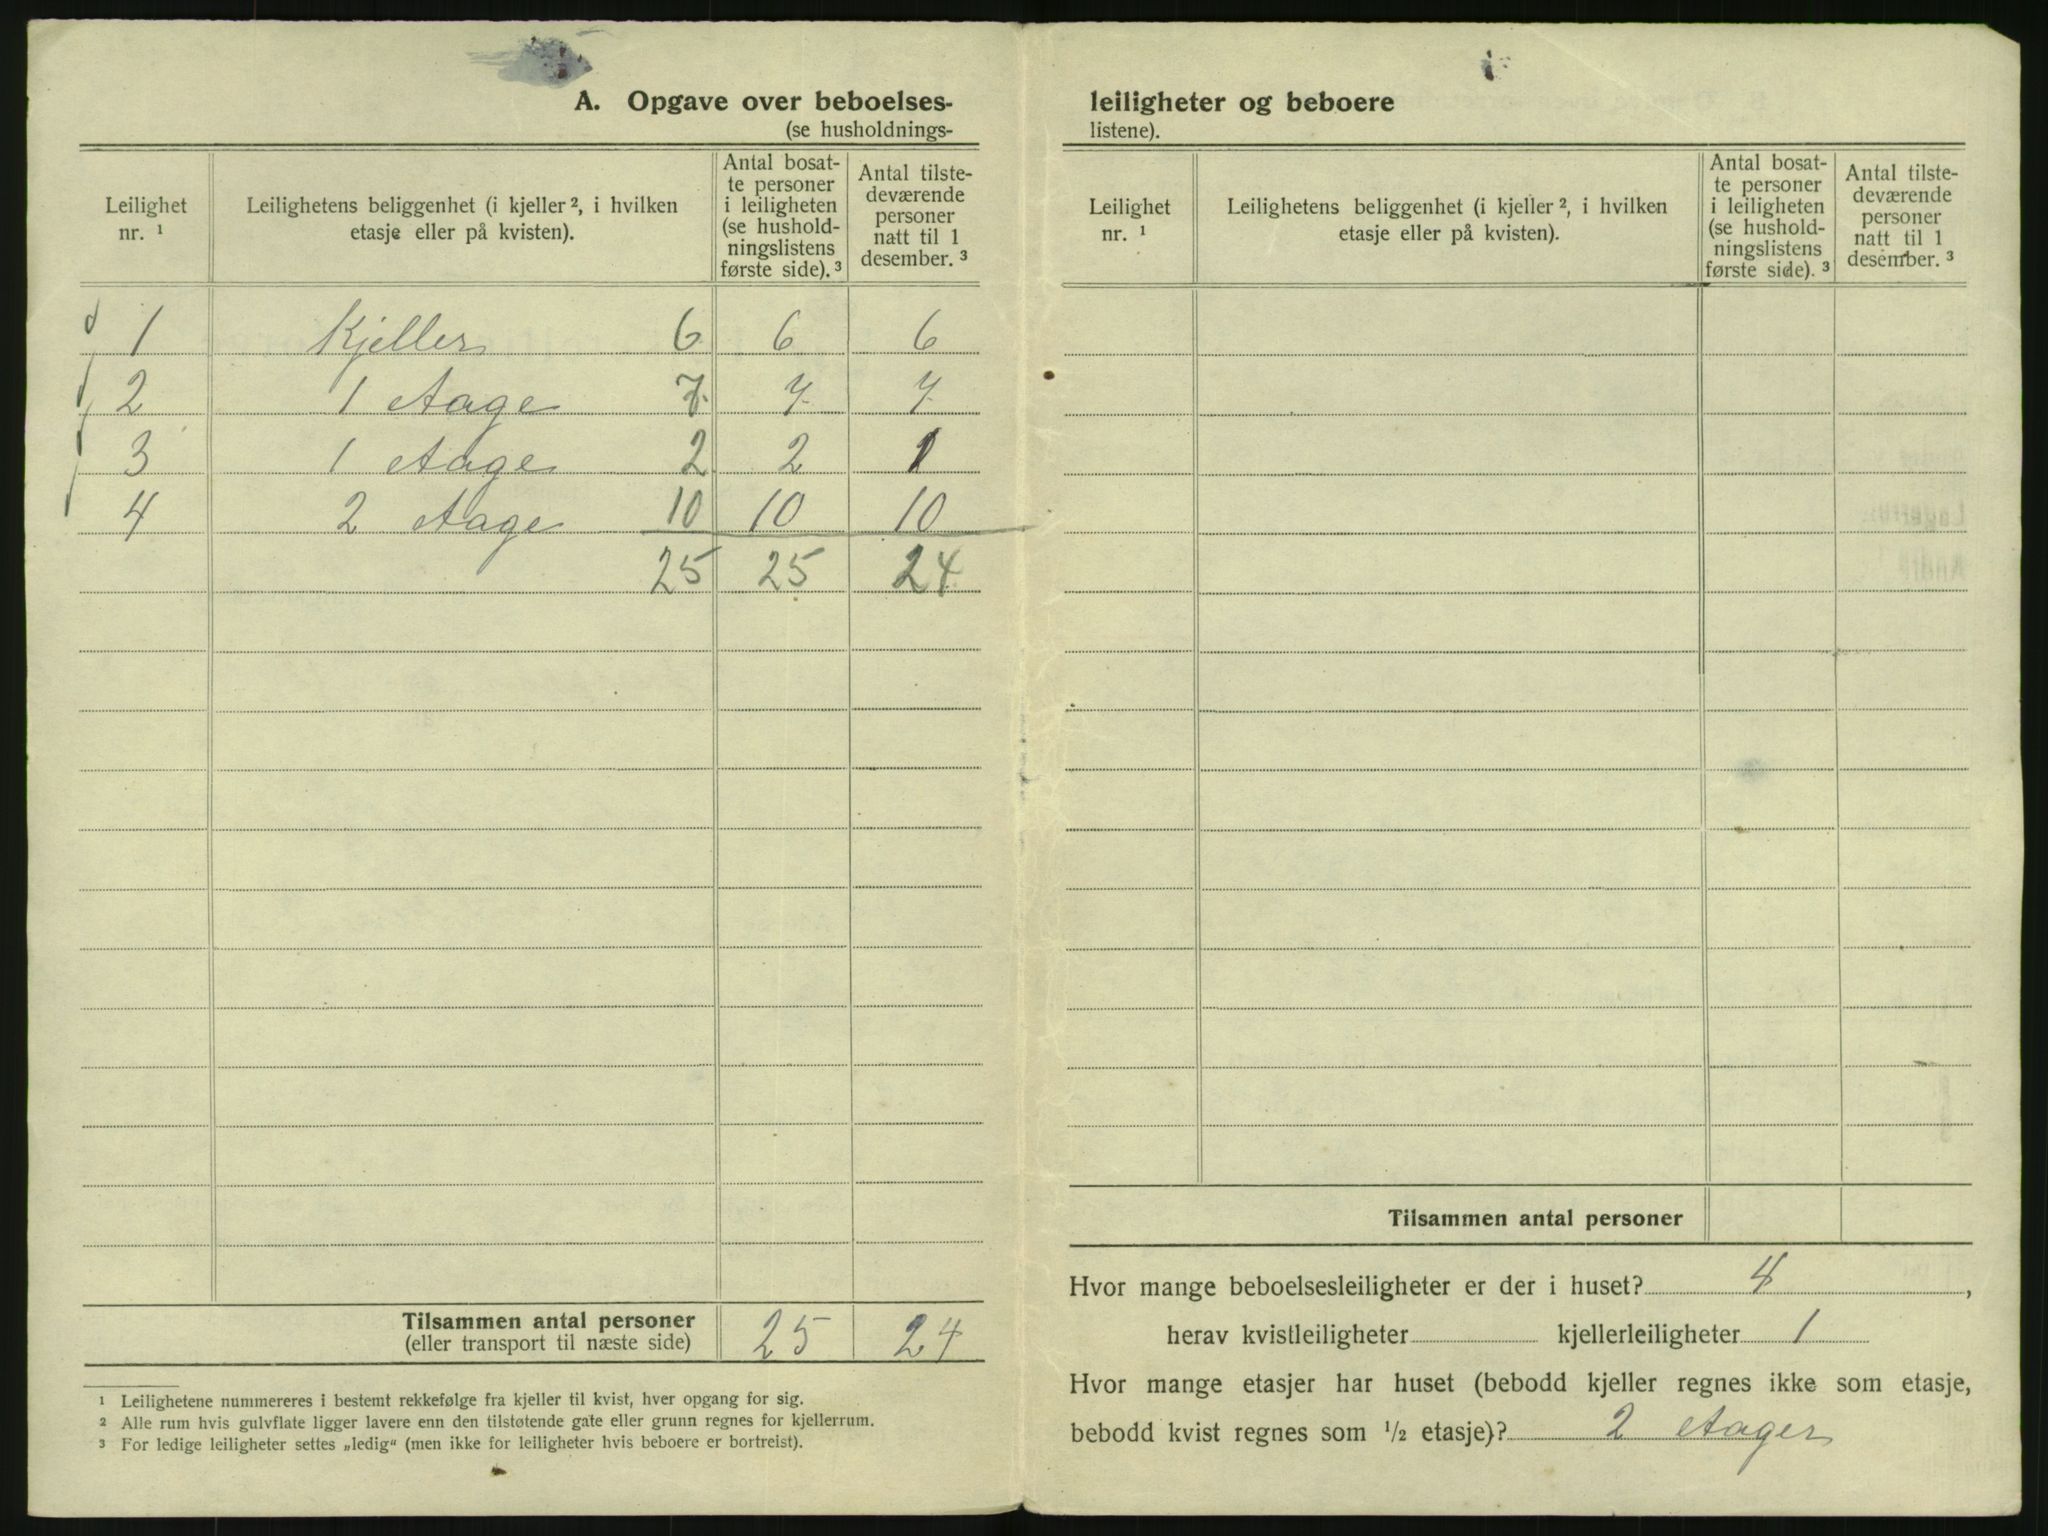 A. Opgave over beboelses-
(se husholdnings-
Leilighet nr. ¹
Leilighetens beliggenhet (i kjeller ², i hvilken etasje eller på kvisten).
Antal bosatte personer i leiligheten (se husholdningslistens første side). ³
Antal tilstedeværende personer natt til 1 desember. ³
1 Kjeller 6 6 6
2 1 Etage 7 7 7
3 1 Etage 2 2 1
4 2 Etage 10 10 10
25 25 24
Tilsammen antal personer 25 24
(eller transport til næste side)
¹ Leilighetene nummereres i bestemt rekkefølge fra kjeller til kvist, hver opgang for sig.
² Alle rum hvis gulvflate ligger lavere enn den tilstøtende gate eller grunn regnes for kjellerrum.
³ For ledige leiligheter settes „ledig“ (men ikke for leiligheter hvis beboere er bortreist).
leiligheter og beboere
listene).
Leilighet nr. ¹
Leilighetens beliggenhet (i kjeller ², i hvilken etasje eller på kvisten).
Antal bosatte personer i leiligheten (se husholdningslistens første side). ³
Antal tilstedeværende personer natt til 1 desember. ³
Tilsammen antal personer
Hvor mange beboelsesleiligheter er der i huset? 4,
herav kvistleiligheter kjellerleiligheter 1
Hvor mange etasjer har huset (bebodd kjeller regnes ikke som etasje,
bebodd kvist regnes som ½ etasje)? 2 Etager